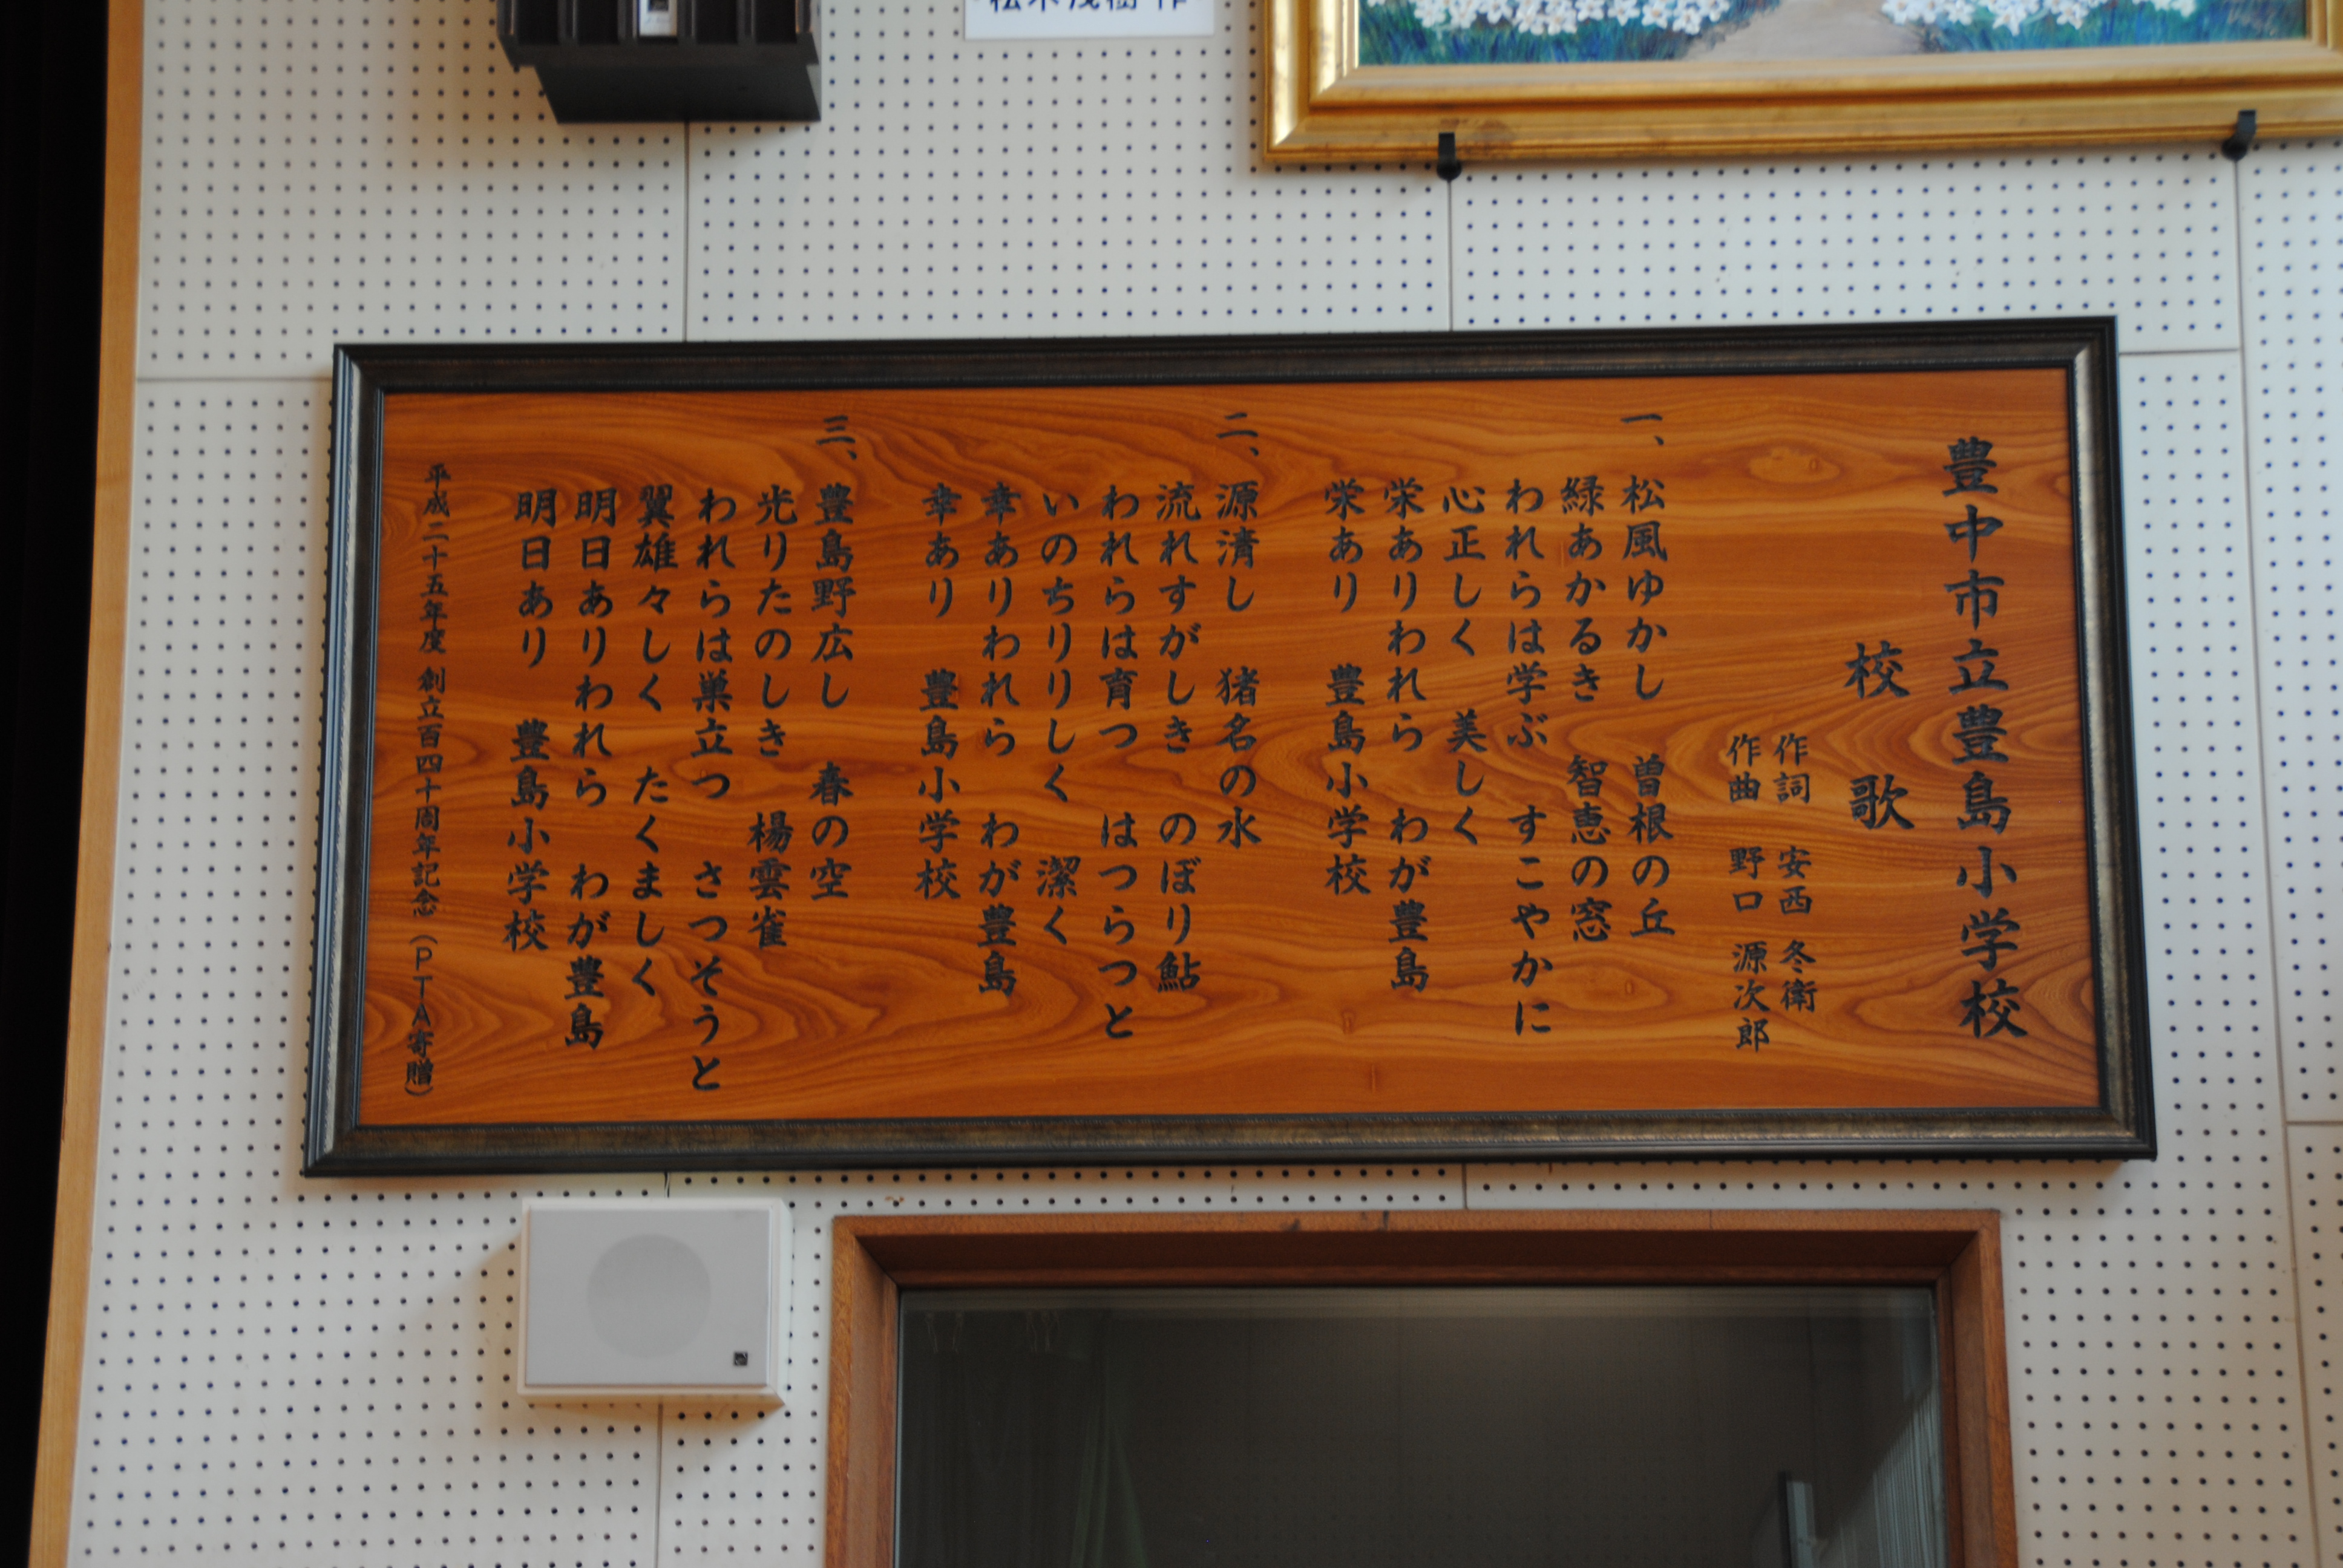 豊中市立豊島小学校
校歌
作詞 安西 冬衛
作曲 野口 源次郎
一、松風ゆかし 曽根の丘
緑あかるき 智恵の窓
われらは学ぶ すこやかに
心正しく 美しく
栄ありわれら わが豊島
栄あり 豊島小学校
二、源清し 猪名の水
流れすがしき のぼり鮎
われらは育つ はつらつと
いのちりりしく 潔く
幸ありわれら わが豊島
幸あり 豊島小学校
三、豊島野広し 春の空
光りたのしき 楊雲雀
われらは巣立つ さつそうと
翼雄々しく たくましく
明日ありわれら わが豊島
明日あり 豊島小学校
平成二十五年度 創立百四十周年記念(PTA寄贈)